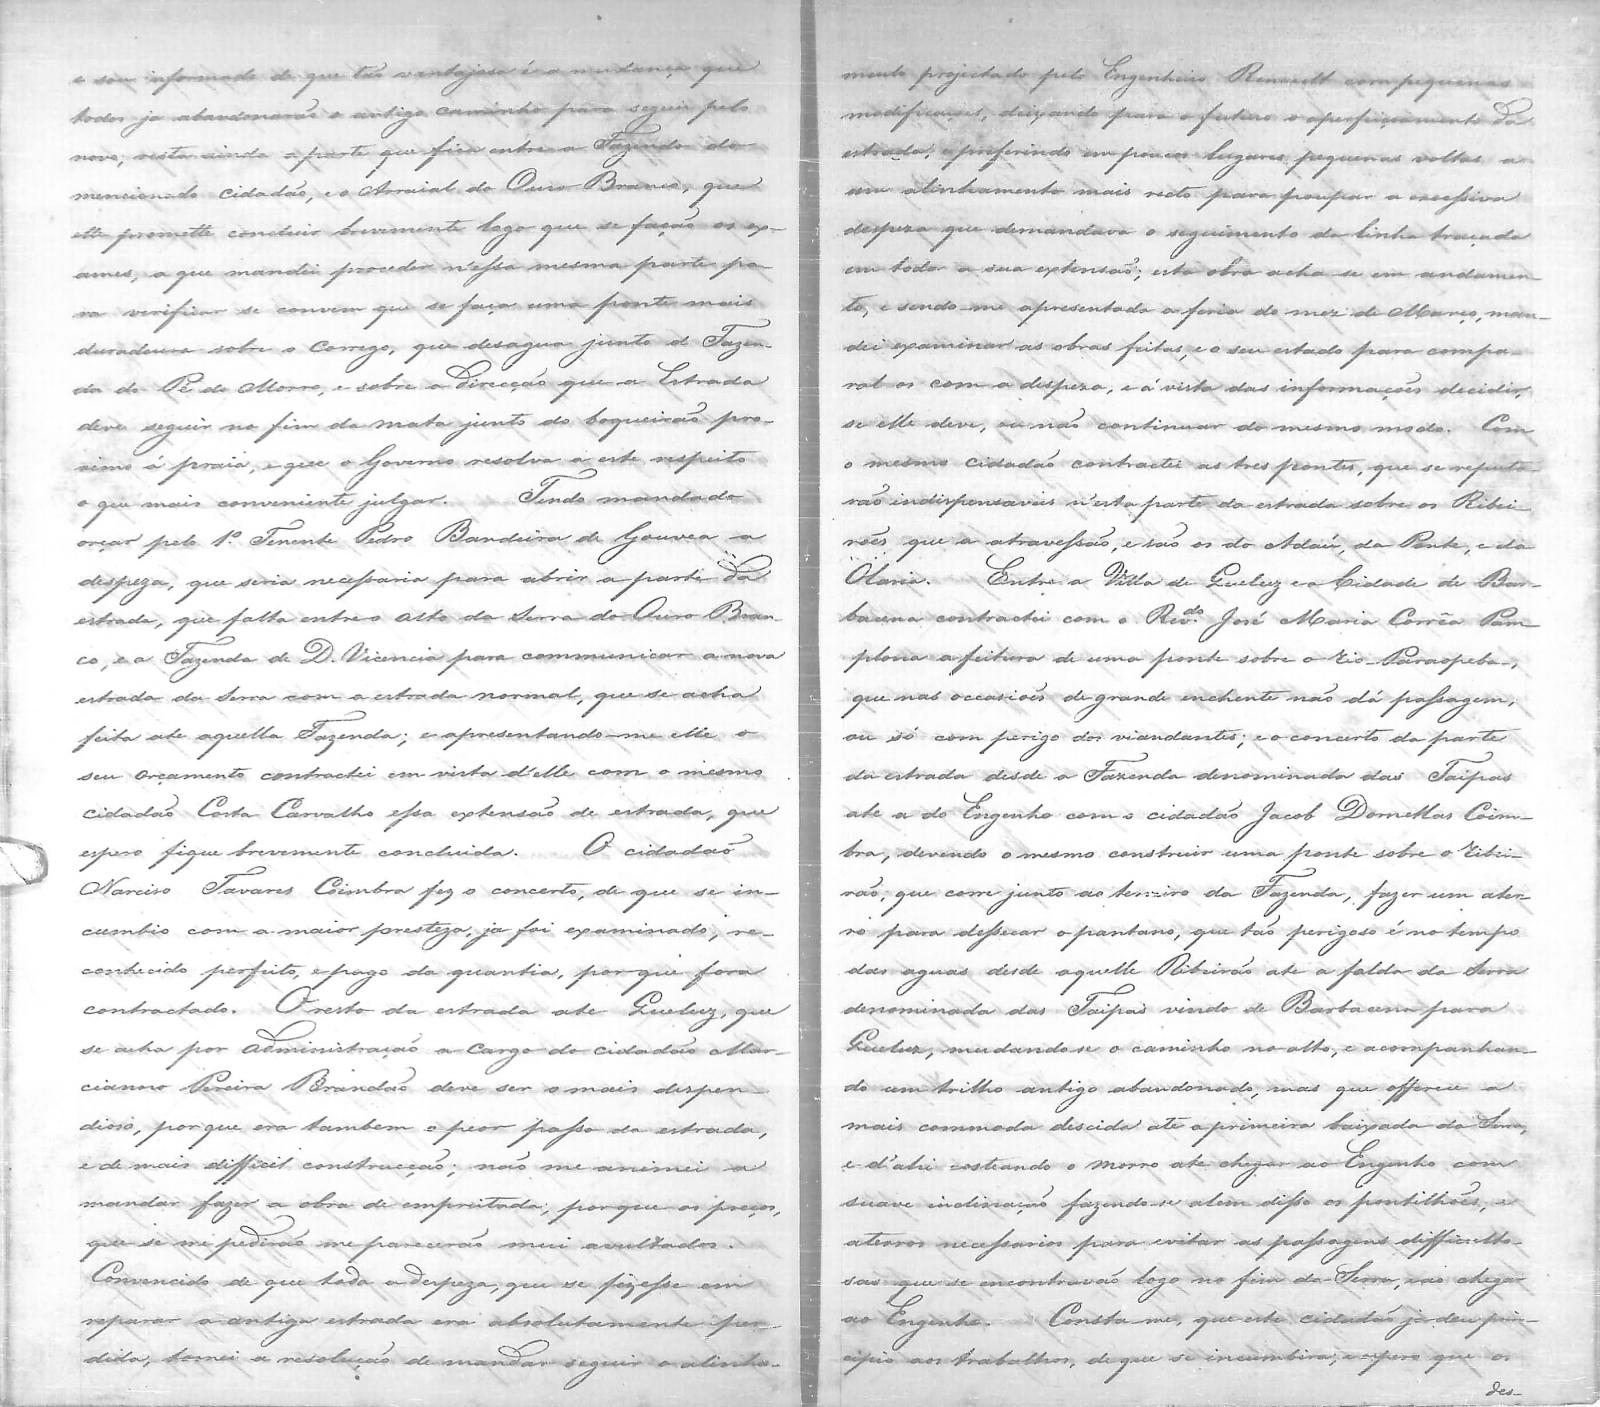 e sou informado de que tão vantajosa é a mudança que
todos ja abandonarão o antigo caminho para seguir pelo
novo, resta ainda a parte que fica entre a Fazenda do
mencionado cidadão, e o Arraial do Ouro Branco, que
elle promette concluir brevemente logo que se fação os ex-
ames, a que mandei proceder n'essa mesma parte pa-
ra verificar se convem que se faça uma ponte mais
duradoura sobre o Corrego, que desagua junto á Fazen-
da do Pé do Morro, e sobre a direcção que a Estrada
deve seguir no fim da mata junto do boqueirão pro-
ximo á praia, e que o Governo resolva a este respeito
o que mais conveniente julgar. Tendo mandado
orçar pelo 1º Tenente Pedro Bandeira de Gouvea a
despeza, que seria necessaria para abrir a parte da
estrada, que falta entre o alto da Serra do Ouro Bran-
co, e a Fazenda de D. Vicencia para communicar a nova
estrada da Serra com a estrada normal, que se acha
feita ate aquella Fazenda; e apresentando-me elle o
seu orçamento contractei em vista d'elle com o mesmo
cidadão Costa Carvalho essa extensão de estrada, que
espero fique brevemente concluida. O cidadão
Narciso Tavares Coimbra fez o concerto, de que se in-
cumbio com a maior presteza, ja foi examinado, re-
conhecido perfeito, e pago da quantia, porque fora
contractado. O resto da estrada ate Queluz, que
se acha por administração a cargo do cidadão Mar-
cianno Pereira Brandão deve ser o mais dispen-
dioso, porque era tambem o peor passo da estrada,
e de mais difficil construcção; não me animei a
mandar fazer a obra de empreitada, porque os preços,
que se me pedirão me parecerão mui avultados.
Convencido de que toda a despeza, que se fizesse em
reparar a antiga estrada era absolutamente per-
dida, tomei a resolução de mandar seguir o alinha-
mento projectado pelo Engenheiro Renault com pequenas
modificações, deixando para o futuro o aperfeiçoamento da
estrada, e preferindo em poucos lugares pequenas voltas a
um alinhamento mais recto para poupar a excessiva
despeza que demandava o seguimento da linha traçada
em toda a sua extensão; esta obra acha se em andamen-
to, e sendo-me apresentada a feria do mez de Março, man-
dei examinar as obras feitas, e o seu estado para compa-
ral os com a despeza, e á vista das informações decidir,
se elle deve, ou não continuar do mesmo modo. Com
o mesmo cidadão contractei as tres pontes, que se reputa-
rão indispensaveis n'esta parte da estrada sobre os Ribei-
rões que a atravessão, e são os do Adaú, da Ponte, e da
Olaria. Entre a Villa de Queluz e a Cidade de Bar-
bacena contractei com o Revdo. José Maria Corrêa Pam-
plona a feitura de uma ponte sobre o rio Paraopeba,
que nas occasiões de grande enchente não dá passagem,
ou só com perigo dos viandantes; e o concerto da parte
da estrada desde a Fazenda denominada das Taipas
ate a do Engenho com o cidadão Jacob Dornellas Coim-
bra, devendo o mesmo construir uma ponte sobre o ribei-
rão, que corre junto ao terreiro da Fazenda, fazer um ater-
ro para dessecar o pantano, que tão perigoso é no tempo
das aguas desde aquelle Ribeirão ate a falda da Serra
denominada das Taipas vindo de Barbacena para
Queluz, mudando-se o caminho no alto, e acompanhan-
do um trilho antigo abandonado, mas que offerece a
mais commoda descida até a primeira baixada da Serra,
e d'ahi costeando o morro ate chegar ao Engenho com
suave inclinação fazendo-se alem disso os pontilhões, e
aterros necessarios para evitar as passagens difficulto-
sas que se encontravão logo no fim da Serra, e ao chegar
ao Engenho. Consta-me, que este cidadão ja deu prin-
cipio aos trabalhos, de que se incumbira; e espero que os
des-